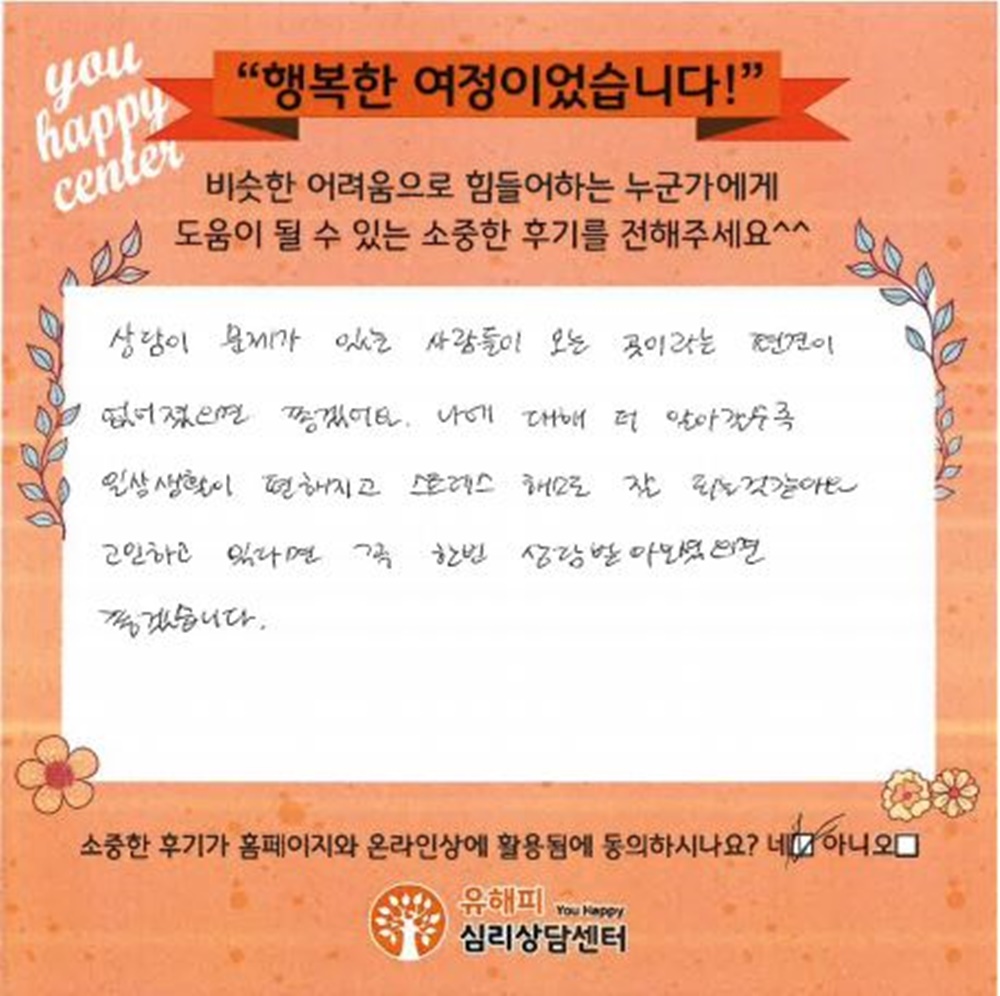 you
happy
center
“행복한 여정이었습니다!”
비슷한 어려움으로 힘들어하는 누군가에게
도움이 될 수 있는 소중한 후기를 전해주세요^^
상담이 문제가 있는 사람들이 오는 곳이라는 편견이
없어졌으면 좋겠어요. 나에 대해 더 알아갈수록
일상생활이 편해지고 스트레스 해소도 잘 되는것같아요
고민하고 있다면 꼭 한번 상담받아보셨으면
좋겠습니다.
소중한 후기가 홈페이지와 온라인상에 활용됨에 동의하시나요? 네☑ 아니오☐
유해피 You Happy
심리상담센터